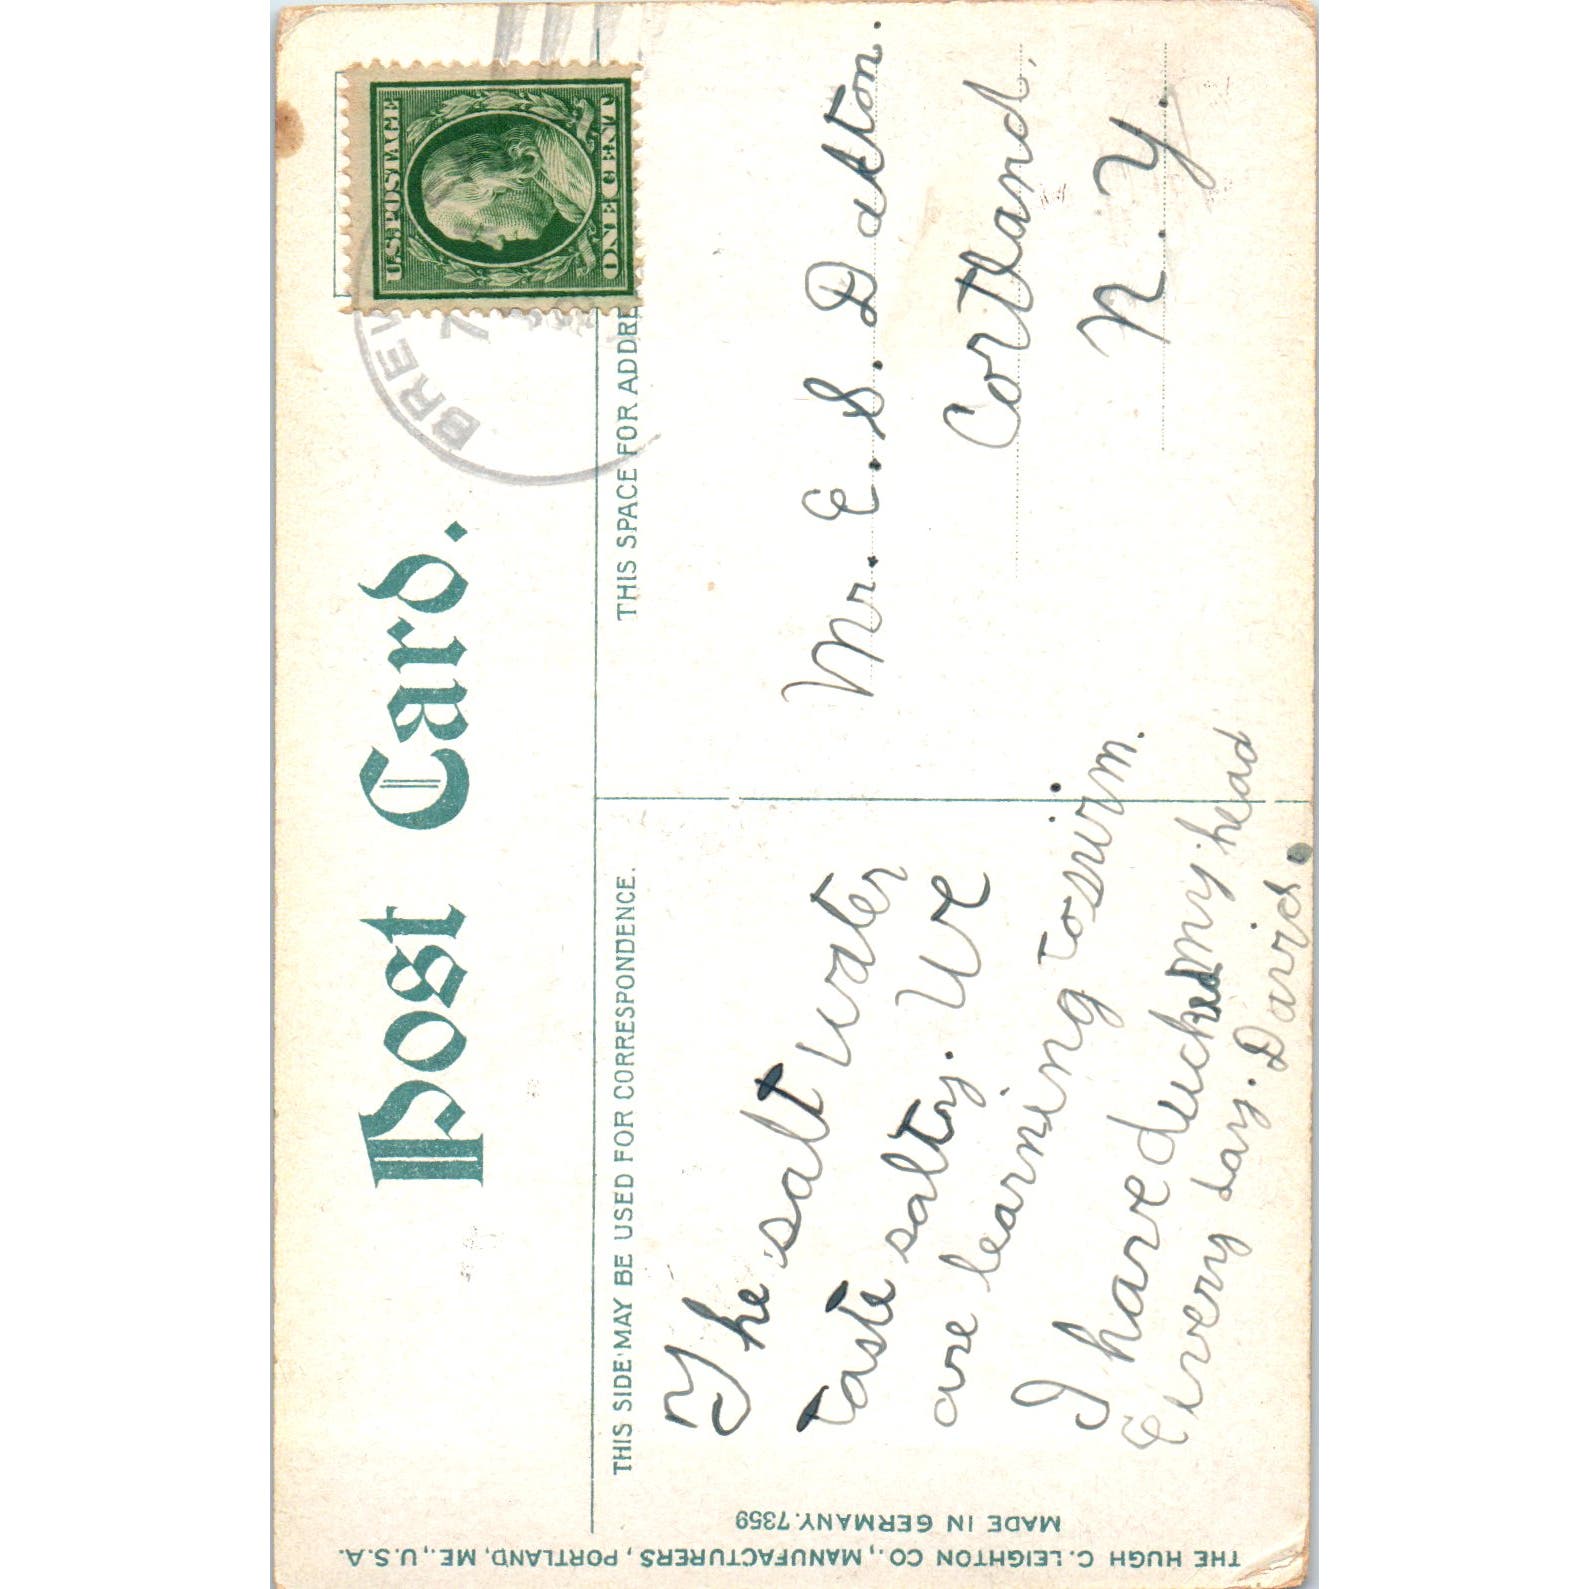 Post Card.
THIS SIDE MAY BE USED FOR CORRESPONDENCE.
THIS SPACE FOR ADDRE
U.S. POSTAGE
ONE CENT
BREW
7
The salt water
taste salty. We
are learning to swim.
I have ducked my head
Every day. David.
Mr. E. S. Dalton.
Cortland,
N. Y.
THE HUGH C. LEIGHTON CO., MANUFACTURERS, PORTLAND, ME., U.S.A.
MADE IN GERMANY. 7359